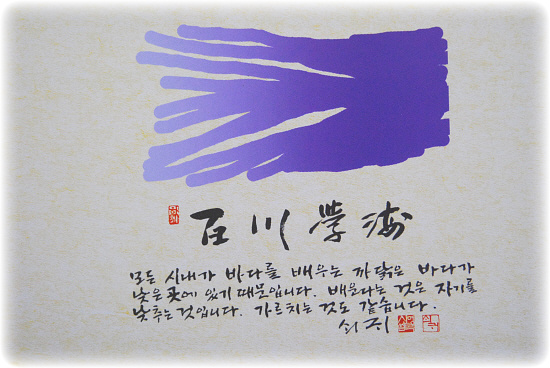 百川學海
모든 시내가 바다를 배우는 까닭은 바다가
낮은 곳에 있기 때문입니다. 배운다는 것은 자기를
낮추는 것입니다. 가르치는 것도 같습니다.
쇠귀